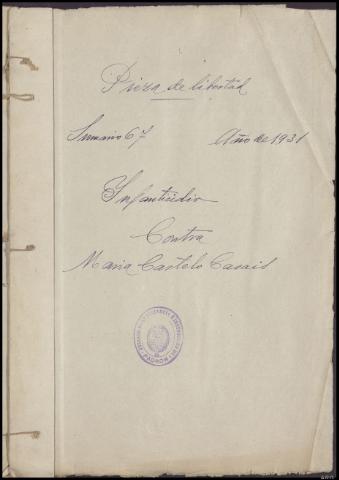 Pieza de libertad
Sumario 67 Año de 1931
Infanticidio
Contra
Maria Castelo Casais
PADRON